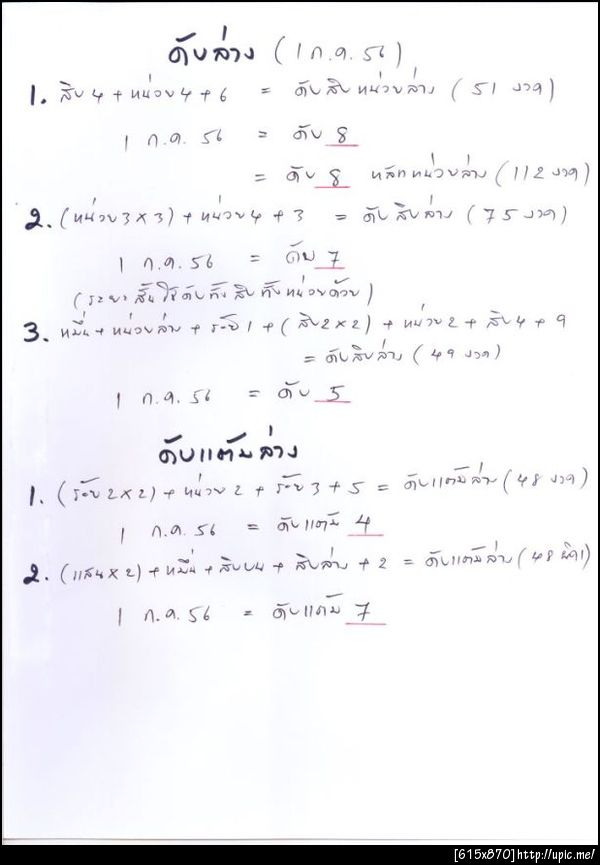 ดับล่าง (1 ก.ค. 56)
1. สิบ4 + หน่วย4 + 6 = ดับสิบหน่วยล่าง (51 งวด)
1 ก.ค. 56 = ดับ 8
= ดับ 8 หลักหน่วยล่าง (112 งวด)
2. (หน่วย3 × 3) + หน่วย4 + 3 = ดับสิบล่าง (75 งวด)
1 ก.ค. 56 = ดับ 7
(ระยะสั้นใช้ดับทั้งสิบทั้งหน่วยด้วย)
3. หมื่น + หน่วยล่าง + ร้อย1 + (สิบ2×2) + หน่วย2 + สิบ4 + 9
= ดับสิบล่าง (49 งวด)
1 ก.ค. 56 = ดับ 5
ดับแต้มล่าง
1. (ร้อย2×2) + หน่วย2 + ร้อย3 + 5 = ดับแต้มล่าง (48 งวด)
1 ก.ค. 56 = ดับแต้ม 4
2. (แสน×2) + หมื่น + สิบบน + สิบล่าง + 2 = ดับแต้มล่าง (48 ผิด1)
1 ก.ค. 56 = ดับแต้ม 7
[615x870]http://upic.me/